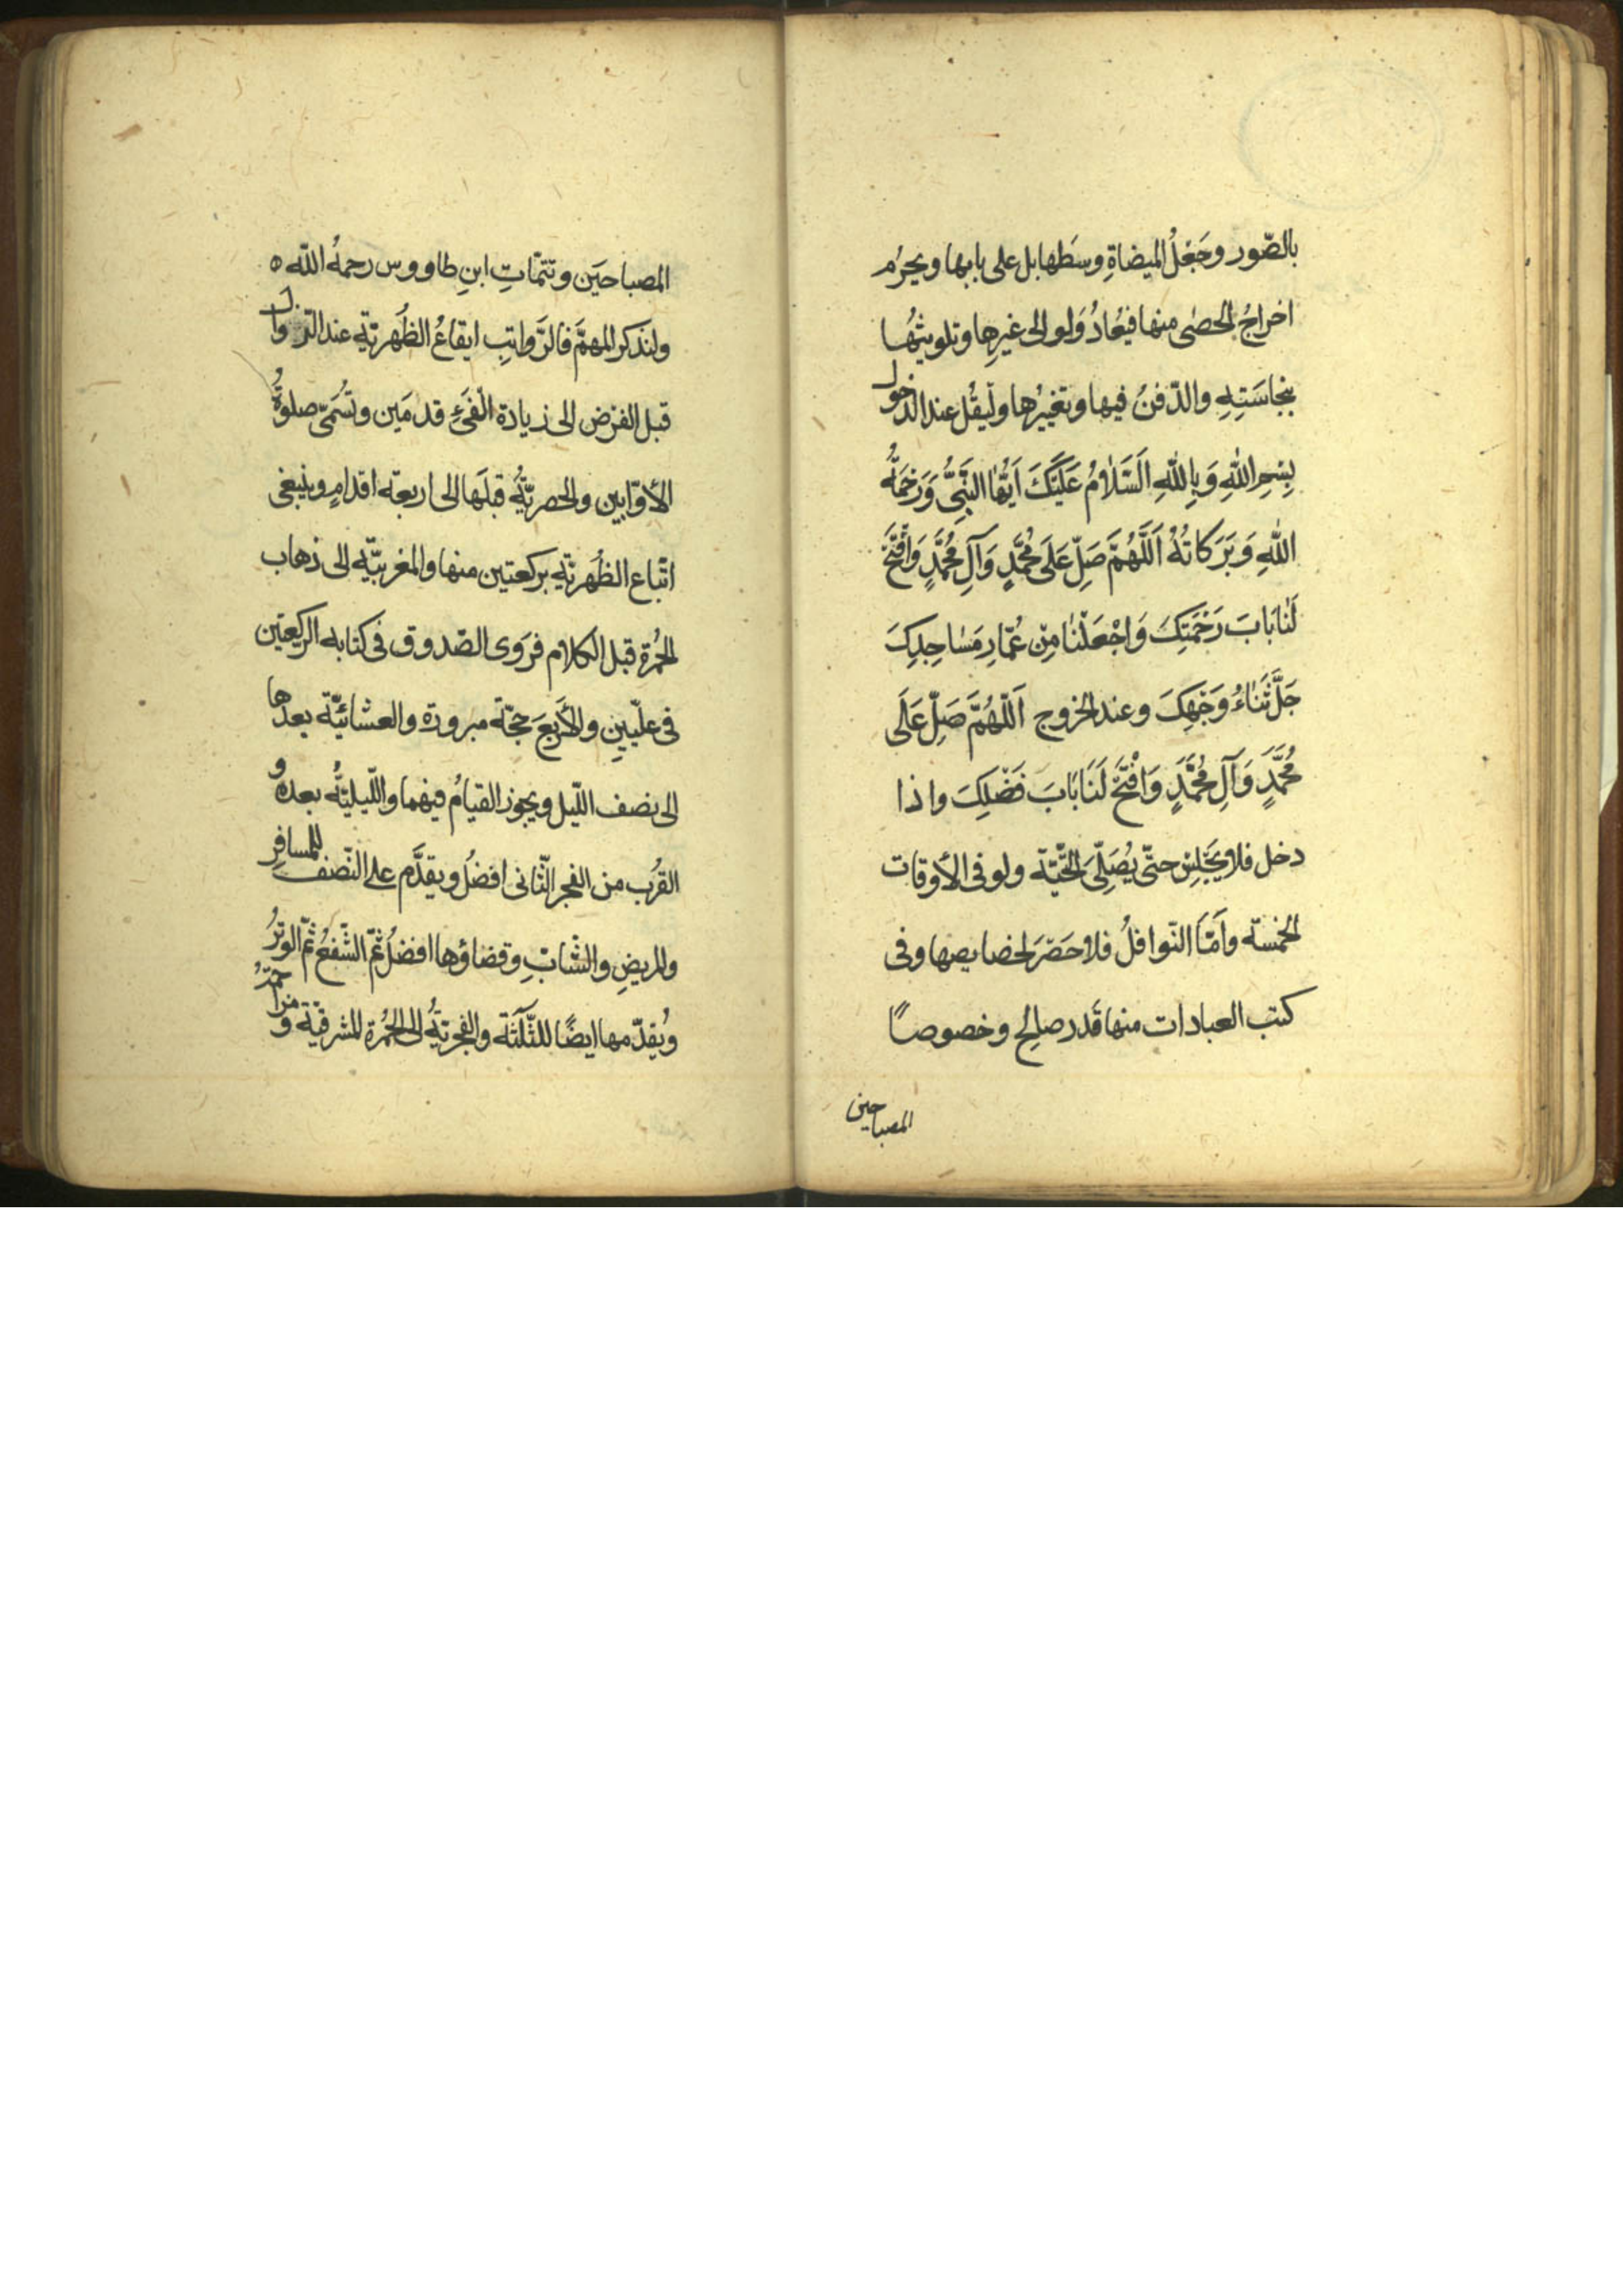 بالصّور وجَعْلُ الميضاةِ وسَطها بل على بابها ويحرُم
اخراجُ الحصٰى منها فيُعادُ وَلو الى غيرِها وتلويثُها
بنجاسَتِهِ والدّفنُ فيها وتغييرُها وليَقُل عند الدخول
بِسْمِ اللّٰهِ وَبِاللّٰهِ اَلسَّلاٰمُ عَلَيْكَ اَيُّهَا النَّبِىُّ وَرَحْمَةُ
اللّٰهِ وَبَرَكاتُهُ اَللّٰهُمَّ صَلِّ عَلَى مُحَمَّدٍ وَآلِ مُحَمَّدٍ وَافْتَحْ
لَنٰا بَابَ رَحْمَتِكَ وَاجْعَلْنٰا مِنْ عُمّارِ مَسٰاجِدِكَ
جَلَّ ثَنٰاءُ وَجْهِكَ وعند الخروج اَللّٰهُمَّ صَلِّ عَلَى
مُحَمَّدٍ وَآلِ مُحَمَّدٍ وَافْتَحْ لَنَا بَابَ فَضْلِكَ واذا
دخل فلا يَجْلِسْ حتّى يُصَلِّىَ التَّحيّة ولو فى الأوقات
الخمسة وأمّا النّوافلُ فلا حَصْرَ لخصايصها وفى
كتب العبادات منها قَدر صالِح وخصوصاً
المصباحين
المصباحَين وتتمّاتِ ابنِ طاووس رحمهُ اللّٰه ٥
ولنذكر المهمَّ فالرَّواتِبِ ايقاعُ الظُهريّةِ عند الزوال
قبل الفرض الى زيادة الفَىْءِ قدمَين وتُسَمّى صلوةُ
الأوّابين والعصريّةُ قبلَها الى اربعة اقدامٍ وينبغى
اتْباع الظُهريّةِ بركعتين منها والمغربيّة الى ذهاب
الحُمرة قبل الكلام فرَوى الصّدوق فى كتابه الركعتين
فى علّيّين والأربَعَ حجّة مبرورة والعشائيّة بعدها
الى نصف اللّيل ويجوز القيامُ فيهما واللّيليّةُ بعدهُ و
القُرب من الفجر الثّانى افضلُ ويقدَّم على النّصف للمسافِر
والمريضِ والشّابِّ وقضاؤها افضلُ ثمّ الشّفعُ ثمّ الوترُ
ويُقدّمها ايضًا للثّلثة والفجريّةُ الى الحُمرة المشرقيّة و